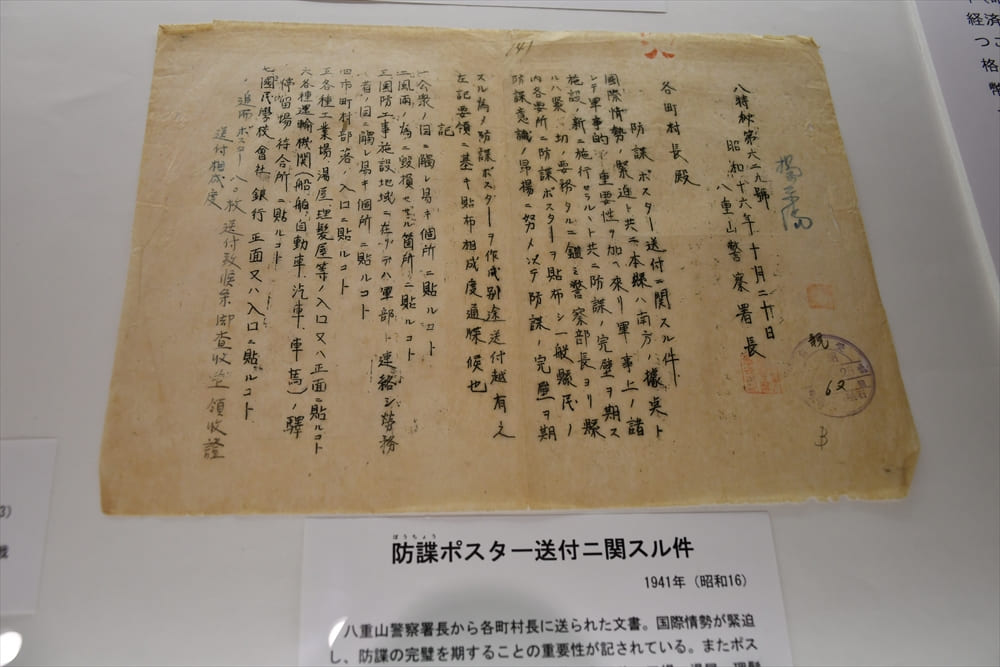 141
八特秘第六二九號
昭和十六年十月二十日
八重山警察署長
各町村長殿
防諜ポスター送付ニ関スル件
國際情勢ノ緊迫ト共ニ本縣ハ南方ノ據点ト
シテ軍事的ノ重要性ヲ加ヘ來リ軍事上ノ諸
施設ノ新ニ施行セラルヽト共ニ防諜ノ完璧ヲ期ス
ルハ緊ノ切ノ要務タルニ鑑ミ警察部長ヨリ縣
内各要所ニ防諜ポスターヲ貼布シ一般縣民ノ
防諜意識ノ昻揚ニ努メ以テ防諜ノ完璧ヲ期
スル為メ防諜ポスターヲ作成別途送付越有之
左記要領ニ基キ貼布相成度通牒候也
記
一公衆ノ目ニ觸レ易キ個所ニ貼ルコト
二風雨ノ為ニ毀損セザル箇所ニ貼ルコト
三國防工事施設地域ニ在リテハ軍部ト連絡シ勞務
者ノ目ニ觸レ易キ個所ニ貼ルコト
四市町村部落ノ入口ニ貼ルコト
五各種工業場、湯屋、理髪屋等ノ入口又ハ正面ニ貼ルコト
六各種運輸機関(船舶、自動車、汽車、車馬)ノ驛
停留場待合所ニ貼ルコト
七國民學校會社銀行正面又ハ入口ニ貼ルコト
追而ポスター八〇枚送付致候条御査收ノ上領收證
送付相成度
號
62
B
防諜ポスター送付ニ関スル件
ぼうちょう
1941年(昭和16)
八重山警察署長から各町村長に送られた文書。国際情勢が緊迫
し、防諜の完璧を期することの重要性が記されている。またポス
経済
つこ
格
幣
3)
戦